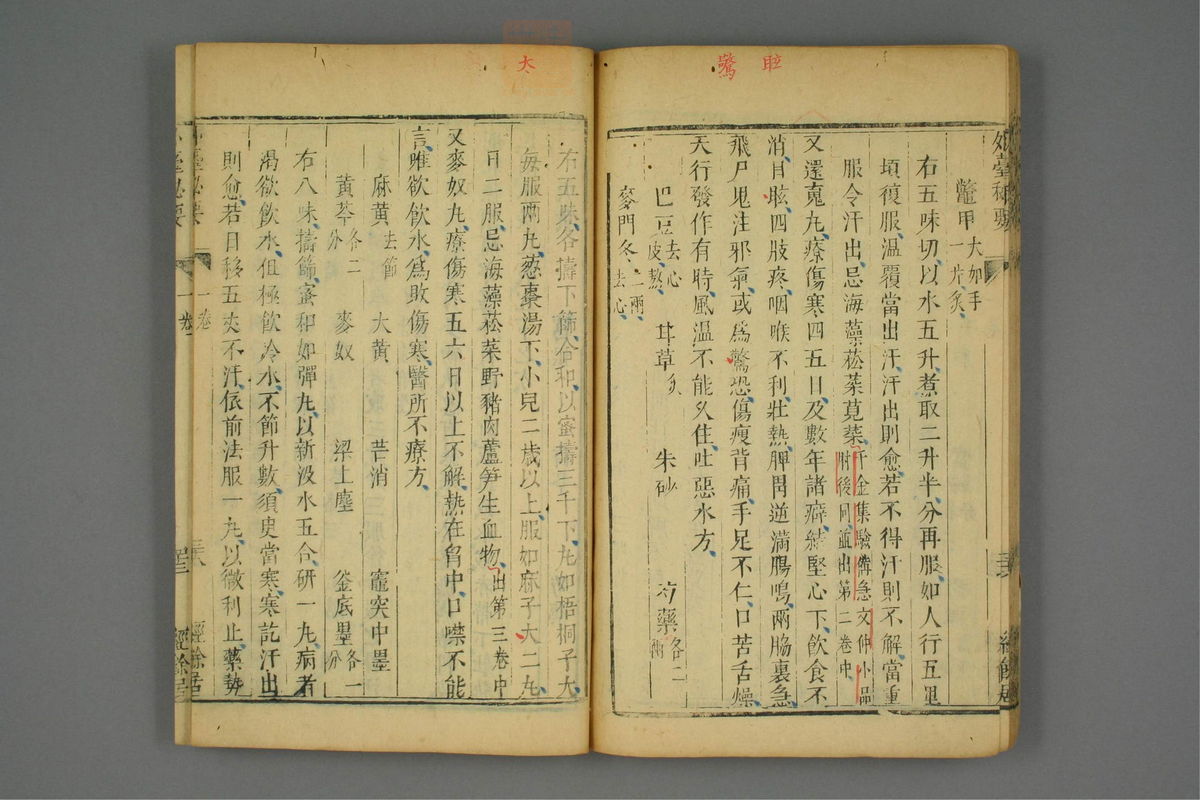 驚 眩
外臺秘要
鼈甲大如手一片炙
右五味切以水五升煮取二升半分再服如人行五里
頃復服溫覆當出汗汗出則愈若不得汗則不解當重
服令汗出忌海藻菘菜莧菜千金集驗備急文仲小品肘後同並出第二卷中
又還魂丸療傷寒四五日及數年諸癖結堅心下飲食不
消目眩四肢疼咽喉不利壯熱脾胃逆滿腸鳴兩脇裏急
飛尸鬼注邪氣或爲驚恐傷瘦背痛手足不仁口苦舌燥
天行發作有時風溫不能久住吐惡水方
巴豆去心皮熬 甘草炙 朱砂 芍藥各二兩
麥門冬二兩去心
大
右五味各擣下篩合和以蜜擣三千下丸如梧桐子大
每服兩丸葱棗湯下小兒二歲以上服如麻子大二丸
日二服忌海藻菘菜野豬肉蘆笋生血物出第三卷中
又麥奴丸療傷寒五六日以上不解熱在胷中口噤不能
言唯欲飲水爲敗傷寒醫所不療方
麻黃去節 大黃 芒消 竈突中墨
黃芩各二分 麥奴 梁上塵 釜底墨各一分
右八味擣篩蜜和如彈丸以新汲水五合研一丸病者
渴欲飲水但極飲冷水不節升數須臾當寒寒訖汗出
則愈若日移五丈不汗依前法服一丸以微利止藥勢
一卷
經餘居